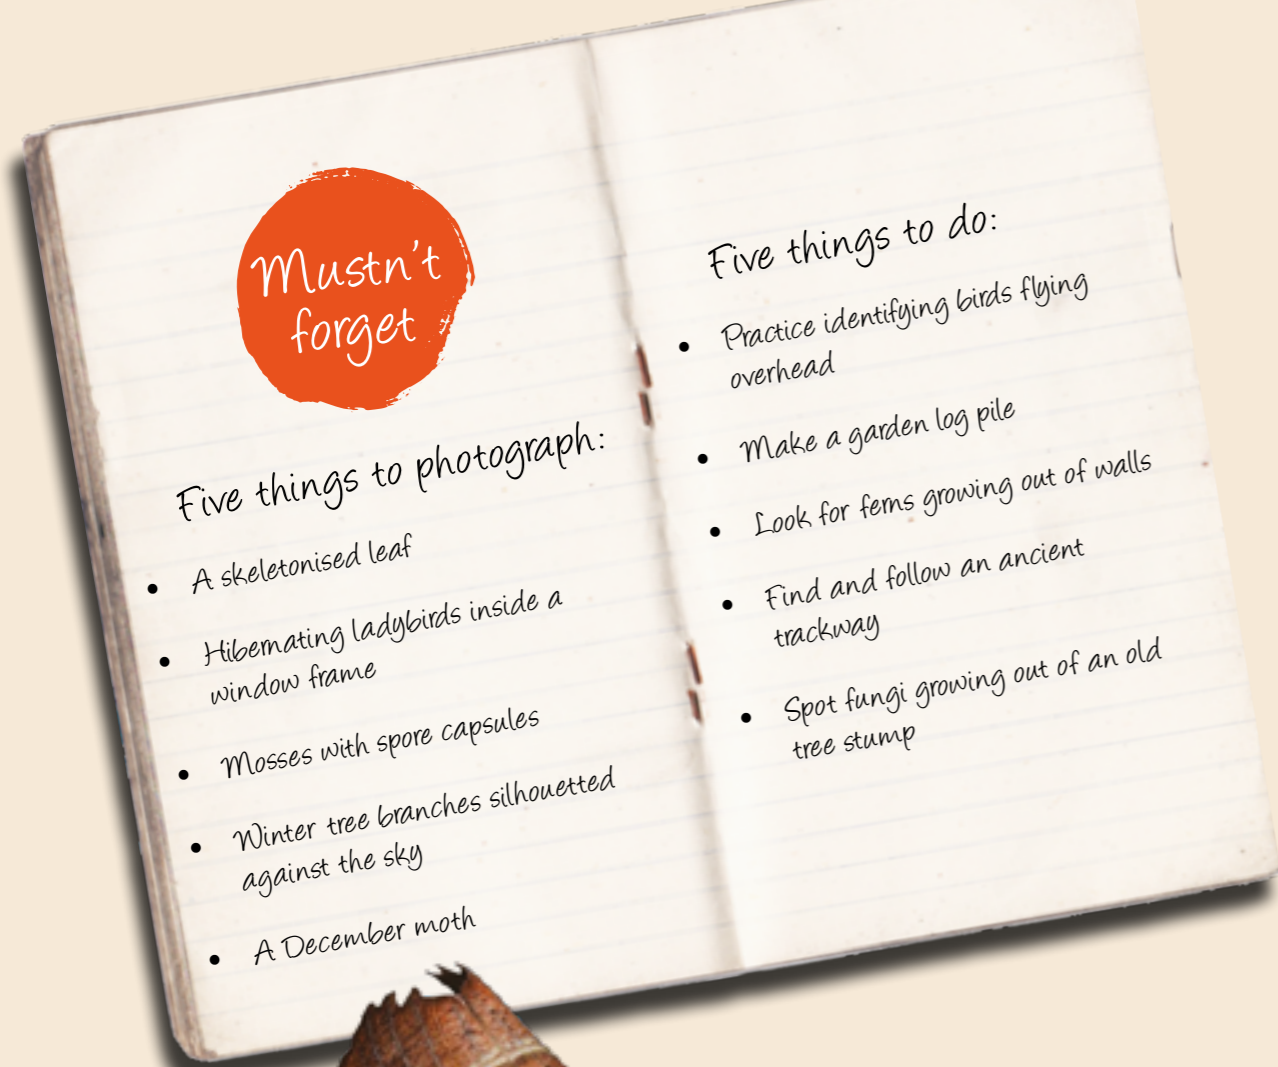 Mustn't
forget
Five things to photograph:
• A skeletonised leaf
• Hibernating ladybirds inside a
window frame
• Mosses with spore capsules
• Winter tree branches silhouetted
against the sky
• A December moth
Five things to do:
• Practice identifying birds flying
overhead
• Make a garden log pile
• Look for ferns growing out of walls
• Find and follow an ancient
trackway
• Spot fungi growing out of an old
tree stump